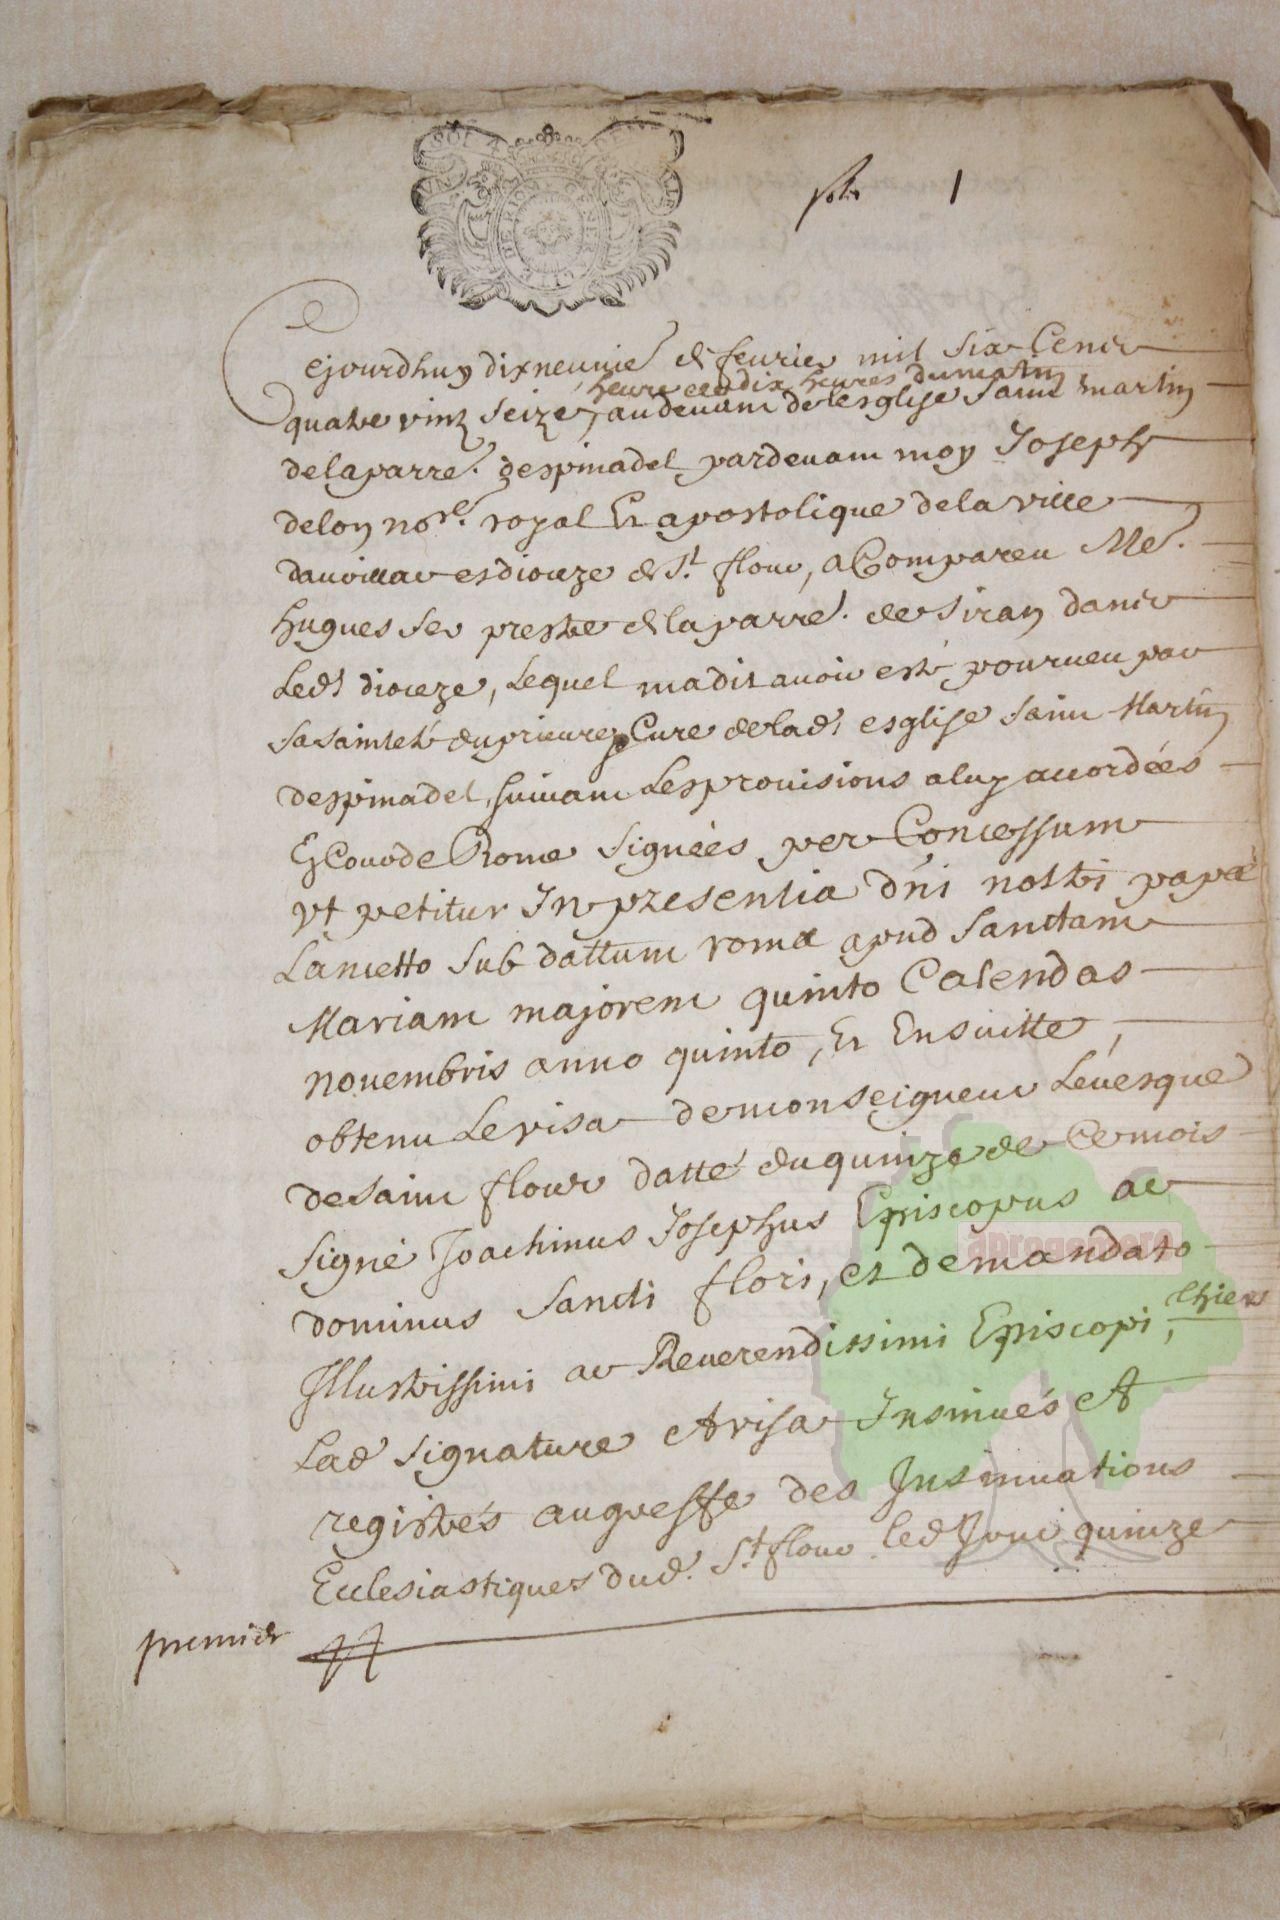 UN SOL 4 DEN LE
GENERALITE DE RIOM
folio 1
Cejourdhuy dixneufvie de feurier mil six Cens
quatre vinz seize, heure de dix heures du matin
audeuant de lesglise saint martin
delaparre. despinadel pardeuant moy Joseph
delon nore. royal Et apostolique dela ville
daurillac esdioceze de St. flour, a Compareu Me.
hugues Ser prestre de laparre. de Siran dans
Led. dioceze, Lequel madit auoir esté pourueu par
sa sainteté du prieuré Cure de lad. esglise saint Martin
despinadel, suiuant Les prouisions a luy accordées
En Cour de Rome signées per Concessum
vt petitur In presentia d'ni nostri papæ
Lancetto sub dattum romæ apud Sanctam
Mariam majorem quinto Calendas
nouembris anno quinto, Et Ensuitte,
obtenu Le visa de monseigneur Léuesque
de saint flour datté du quinze de Ce mois
signé Joachinus Josephus Episcopus ac
dominus sancti flori, et de mandato
Illustrissimi ac Reuerendissimi Episcopi,
Lad signature et visa Insinués et
registrés au greffe des Insinuations
Ecclesiastiques dud. St. flour led Jour quinze
premier
aprogemere